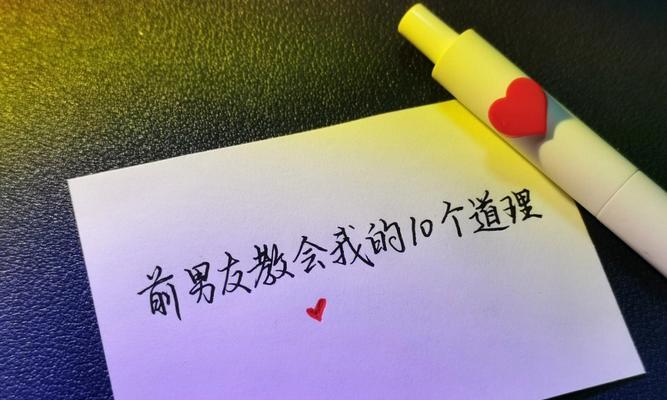 前男友教会我的10个道理